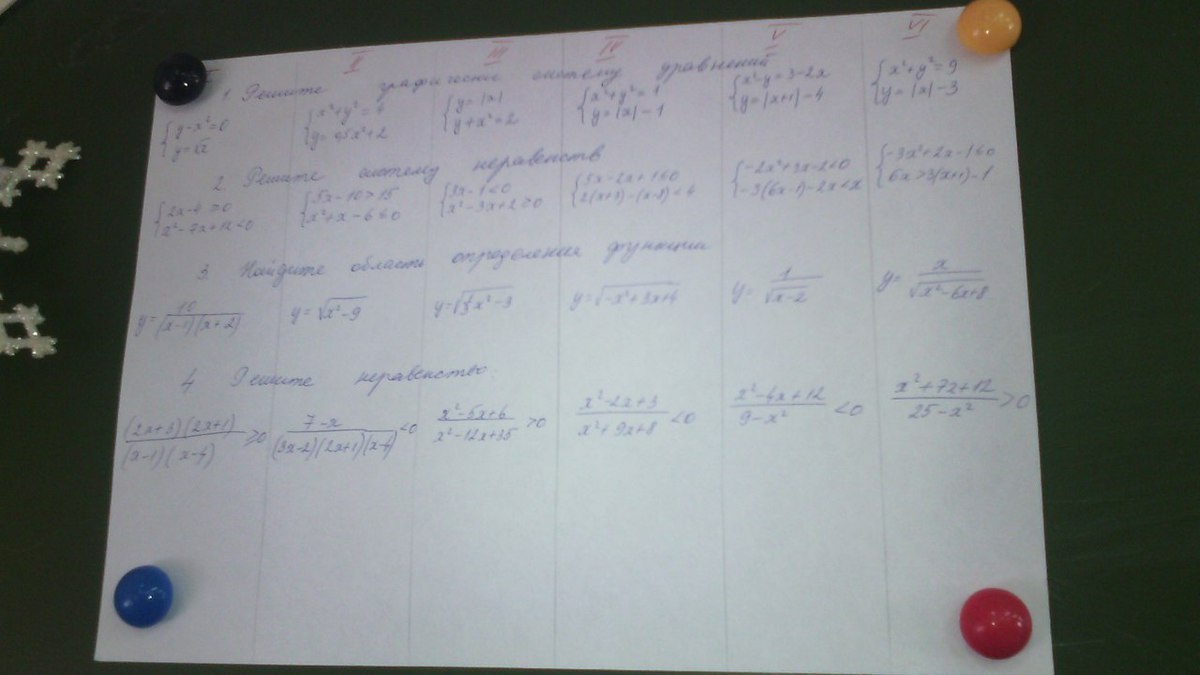 II III IV V VI
1. Решите графически систему уравнений
{y-x²=0 {x²+y²=4 {y=|x| {x²+y²=1 {x²-y=3-2x {x²+y²=9
{y=√x {y=0,5x²+2 {y+x²=2 {y=|x|-1 {y=|x+1|-4 {y=|x|-3
2 Решите систему неравенств
{2x-4≥0 {5x-10>15 {3x-1<0 {-2x²+3x-2<0 {-3x²+2x-1≤0
{x²-7x+12<0 {x²+x-6≤0 {x²-3x+2≥0 {2(x+3)-(x-8)<4 {-3(6x-1)-2x<x {6x>3(x+1)-1
3 Найдите область определения функции
y=10/((x-1)(x+2)) y=√(x²-9) y=√(⅓x²-3) y=√(-x²+3x+4) y=1/√(x-2) y=x/√(x²-6x+8)
4 Решите неравенство
(2x+3)(2x+1)/((x-1)(x-4))≥0 (7-x)/((3x-2)(2x+1)(x-4))<0 (x²-5x+6)/(x²-12x+35)>0 (x²-2x+3)/(x²+9x+8)<0 (x²-4x+12)/(9-x²)<0 (x²+7x+12)/(25-x²)>0